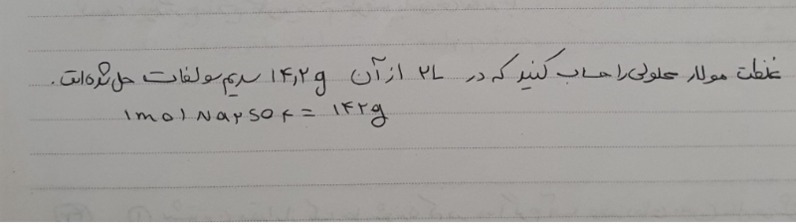 غلظت مولار محلولی را حساب کنید که در ۲L از آن ۱۴٫۲g سدیم سولفات حل شده است.
۱mol Na۲SO۴ = ۱۴۲g